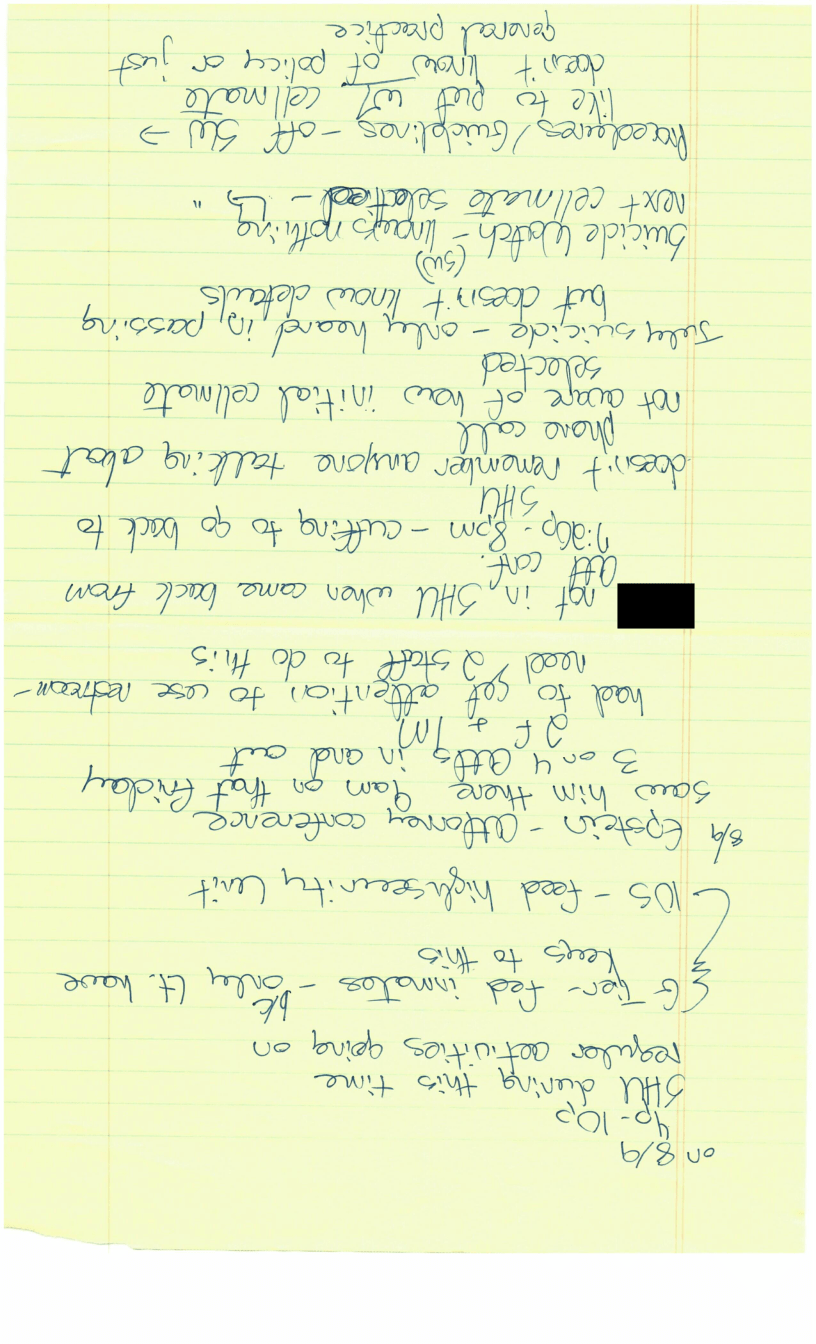 on 8/9
4p-10p
SHU during this time
regular activities going on
G Tier - fed inmates - bk only Lt. have
keys to this
10S - feed high security unit
8/9 Epstein - attorney conference
saw him there 9am on that friday
3 or 4 attys in and out
2F + 1M
had to get attention to use restroom -
need 2 staff to do this
not in SHU when came back from
att conf.
7:20p - 8pm - cuffing to go back to
SHU
doesn't remember anyone talking about
phone call
not aware of how initial cellmate
selected
July suicide - only heard in passing
but doesn't know details
(SW)
Suicide Watch - knows nothing
next cellmate selected - "
Procedures/Guidelines - off SW →
like to put w/ cellmate
doesn't know of policy or just
general practice